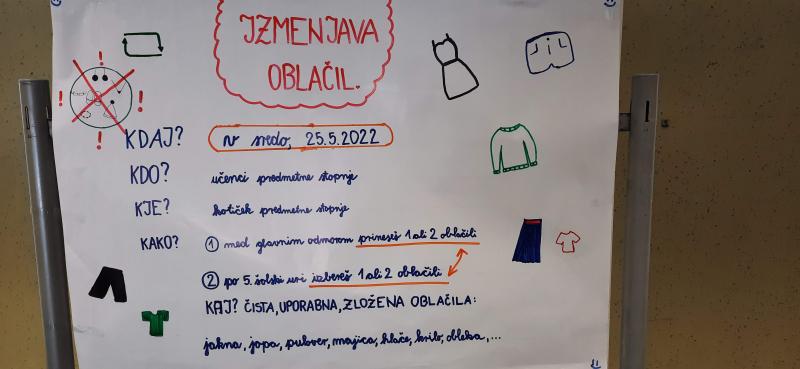 IZMENJAVA
OBLAČIL.
KDAJ? v sredo, 25.5.2022
KDO? učenci predmetne stopnje
KJE? kotiček predmetne stopnje
KAKO? 1 med glavnim odmorom prineseš 1 ali 2 oblačili
2 po 5. šolski uri izbereš 1 ali 2 oblačili
KAJ? ČISTA, UPORABNA, ZLOŽENA OBLAČILA:
jakna, jopa, pulover, majica, hlače, krilo, obleka, ...